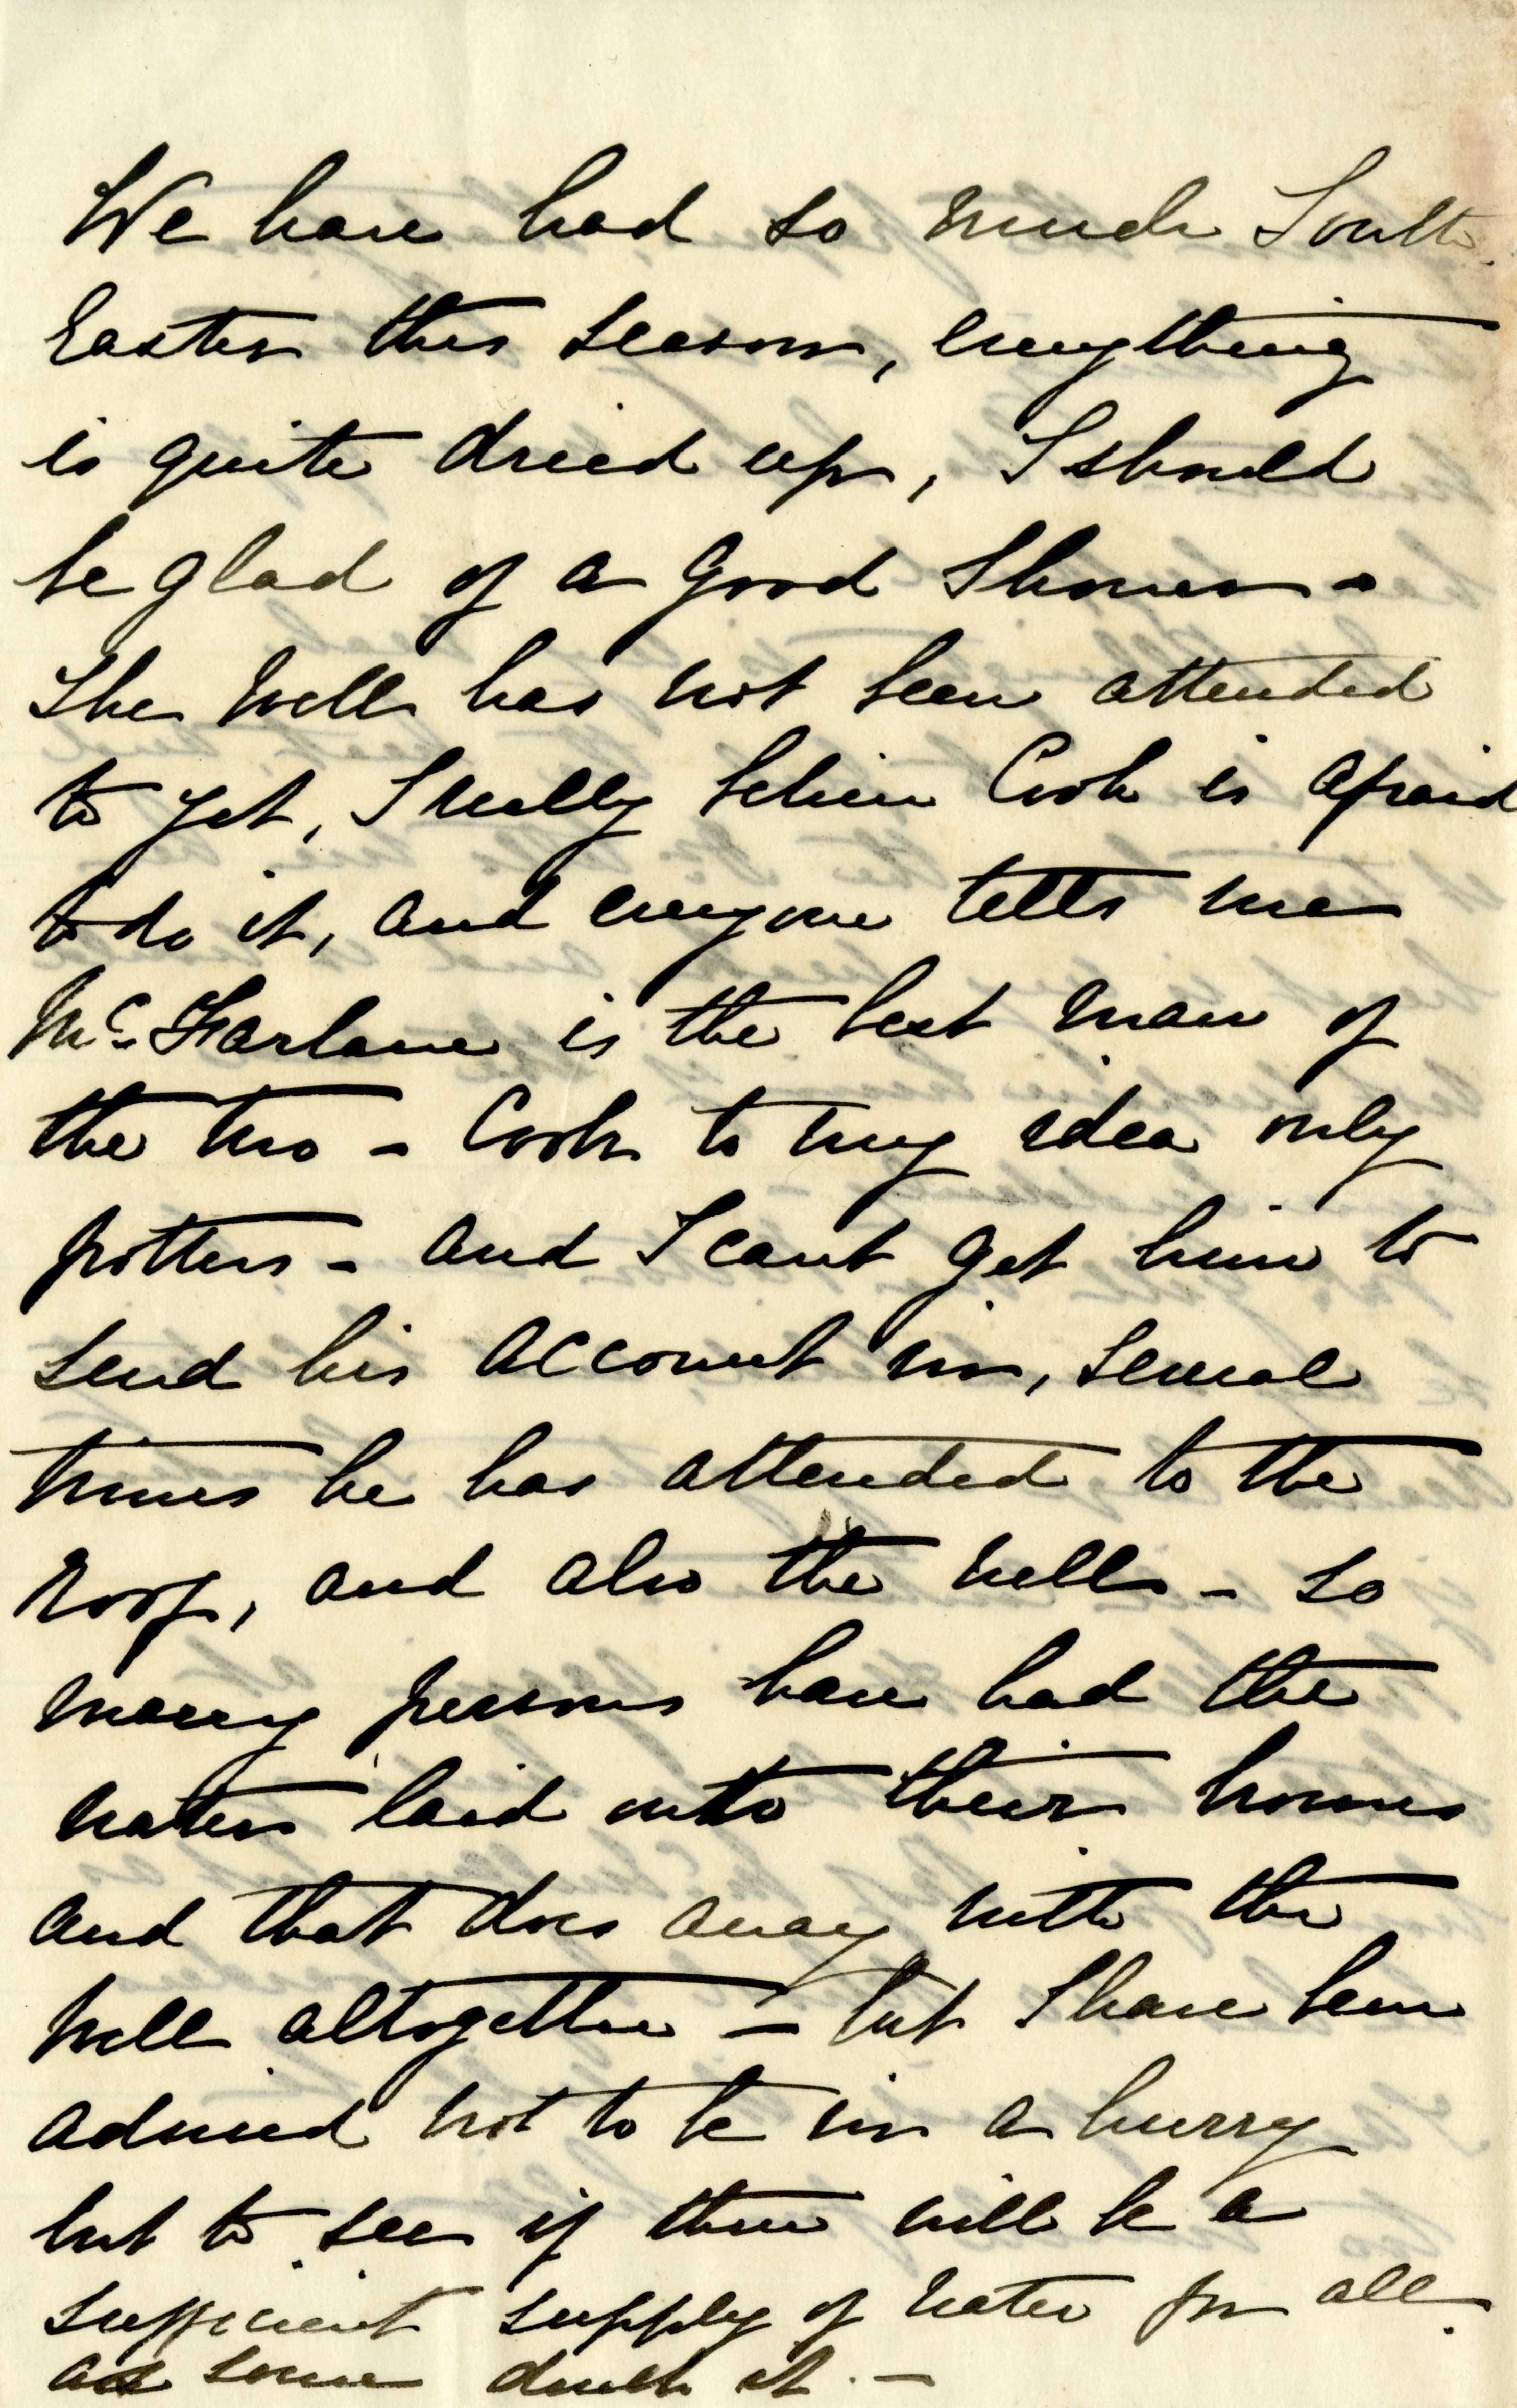 We have had so much South
Easter this season, everything
is quite dried up, I should
be glad of a good shower -
The Well has not been attended
to yet, I really believe Cook is afraid
to do it, and everyone tells me
Mc. Farlane is the best man of
the two - Cook to my idea only
potters - and I cant get him to
send his account in, several
times he has attended to the
roof, and also the well - so
many persons have had the
water laid into their houses
and that does away with the
well altogether - but I have been
advised not to be in a hurry
but to see if there will be a
sufficient supply of water for all.
as some doubt it. -